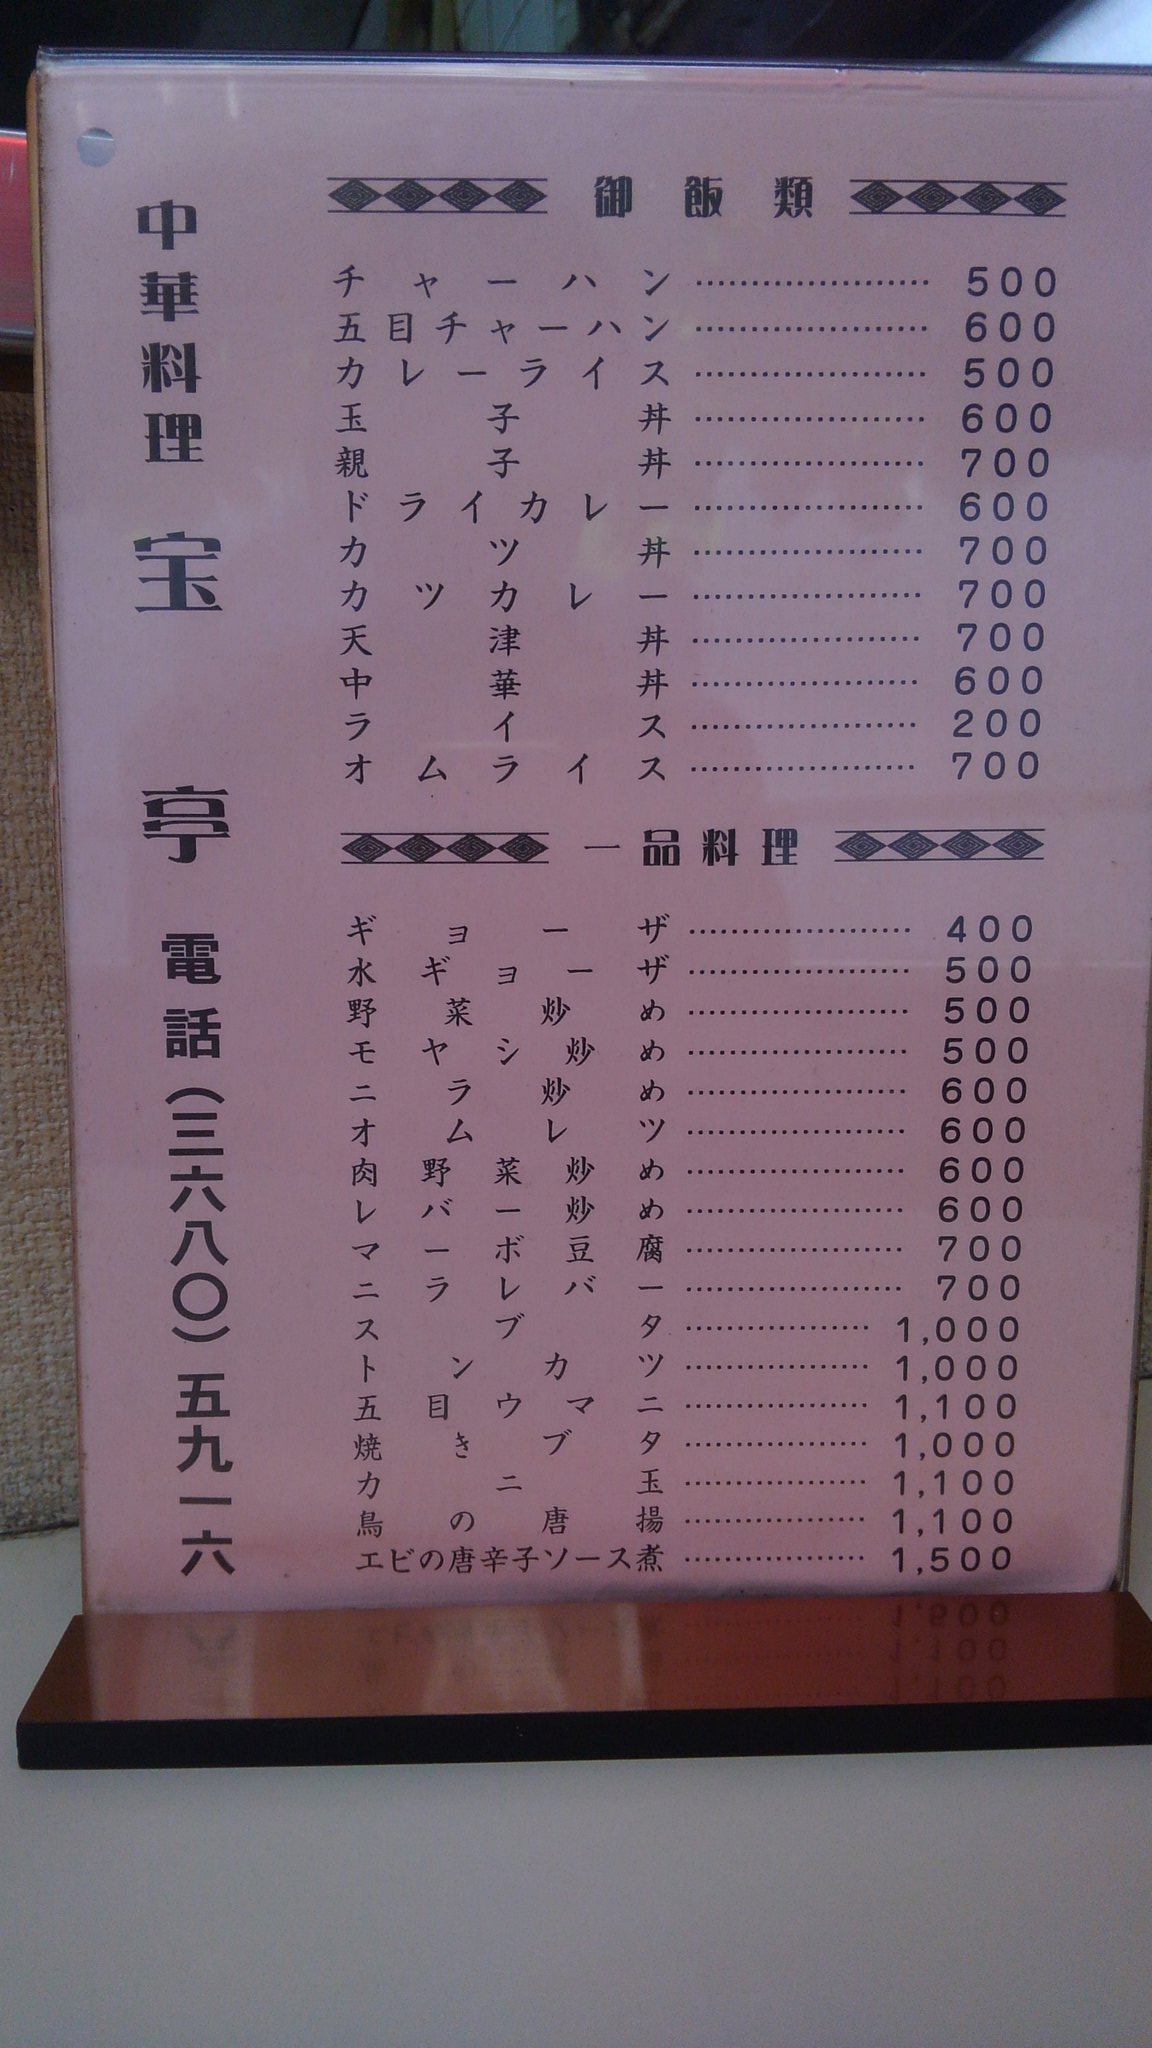 中華料理 宝亭 電話(三六八〇)五九一六
御飯類
チャーハン…………………500
五目チャーハン…………………600
カレーライス…………………500
玉子丼…………………600
親子丼…………………700
ドライカレー…………………600
カツ丼…………………700
カツカレー…………………700
天津丼…………………700
中華丼…………………600
ライス…………………200
オムライス…………………700
一品料理
ギョーザ…………………400
水ギョーザ…………………500
野菜炒め…………………500
モヤシ炒め…………………500
ニラ炒め…………………600
オムレツ…………………600
肉野菜炒め…………………600
レバー炒め…………………600
マーボ豆腐…………………700
ニラレバー…………………700
スブタ………………1,000
トンカツ………………1,000
五目ウマニ………………1,100
焼きブタ………………1,000
カニ玉………………1,100
鳥の唐揚………………1,100
エビの唐辛子ソース煮………………1,500